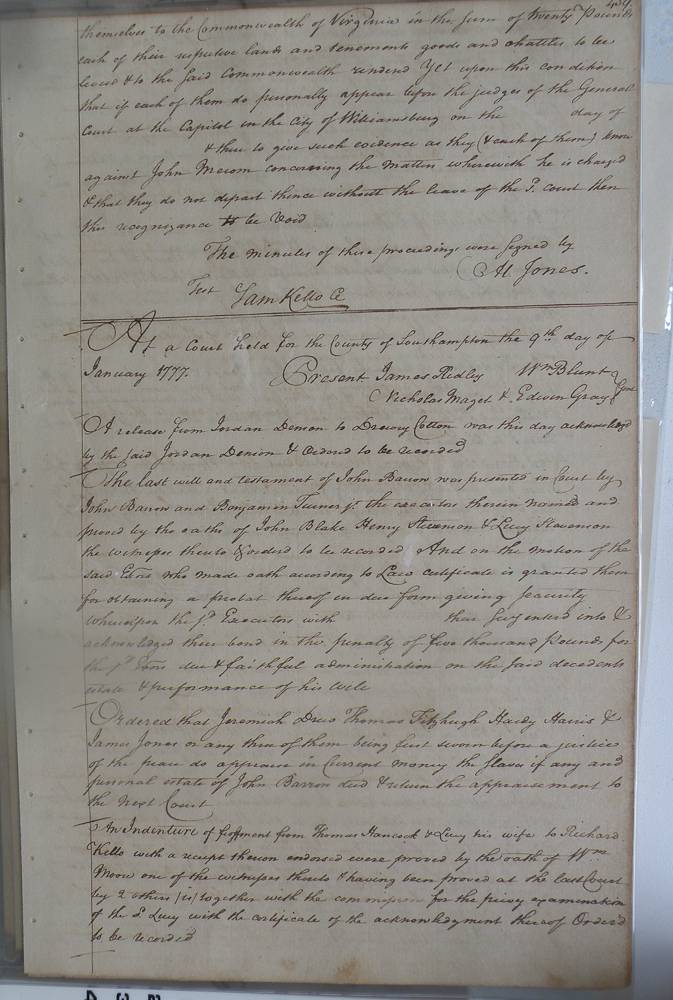 themselves to the Commonwealth of Virginia in the sum of twenty Pounds
each of their respective lands and tenements goods and chattles to be
levied & to the said Commonwealth rendered Yet upon this condition
that if each of them do personally appear before the judges of the General
Court at the Capitol in the City of Williamsburg on the day of
& there to give such evidence as they (& each of them) know
against John Merom concerning the matters wherewith he is charged
& that they do not depart thence without the leave of the sd. court then
this recognizance to be Void
The minutes of these proceedings were signed by
Al Jones.
Test Sam Kello C
At a Court held for the County of Southampton the 9th day of
January 1777.
Present James Ridley Wm Blunt
Nicholas Maget & Edwin Gray Gent
A release from Jordan Denson to Drewry Cotton was this day acknowledged
by the said Jordan Denson & Ordered to be recorded
The last will and testament of John Barrow was presented in Court by
John Barrow and Benjamin Turner jr. the executors therein named and
proved by the oaths of John Blake Henry Stevenson & Lucy Stevenson
the witnesses thereto & orderd to be recorded And on the motion of the
said Exors who made oath according to Law certificate is granted them
for obtaining a probat thereof in due form giving security
whereupon the sd. Executors with their Secy enterd into &
acknowledged their bond in the penalty of five thousand Pounds for
the sd. Exors due & faithful administration on the said decedents
estate & performance of his Will
Ordered that Jeremiah Drew Thomas Fitzhugh Hardy Harris &
James Jones or any three of them being first sworn before a justice
of the peace do appraise in Current money the Slaves if any and
personal estate of John Barrow decd & return the appraisement to
the Next Court
An Indenture of feoffment from Thomas Hancock & Lucy his wife to Richard
Kello with a receipt thereon endorsed were proved by the oath of Wm
Moore one of the witnesses thereto & having been proved at the last Court
by 2 others is together with the commission for the privy examination
of the sd Lucy with the certificate of the acknowledgment thereof Order'd
to be recorded